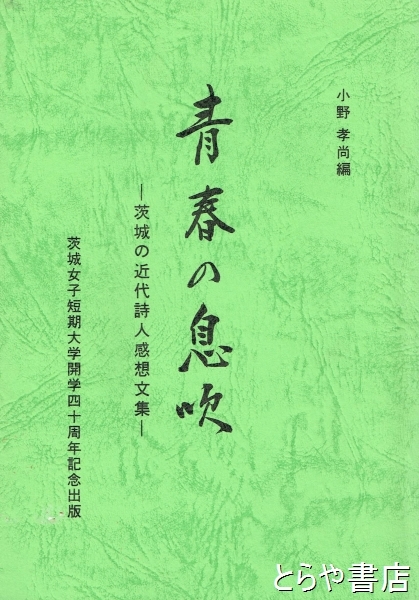 小野 孝尚編
青春の息吹
―茨城の近代詩人感想文集―
茨城女子短期大学開学四十周年記念出版
とらや書店